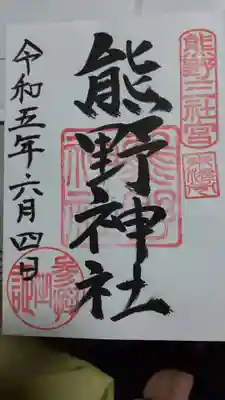 熊野三社宮
熊野神社
令和五年・六月四日